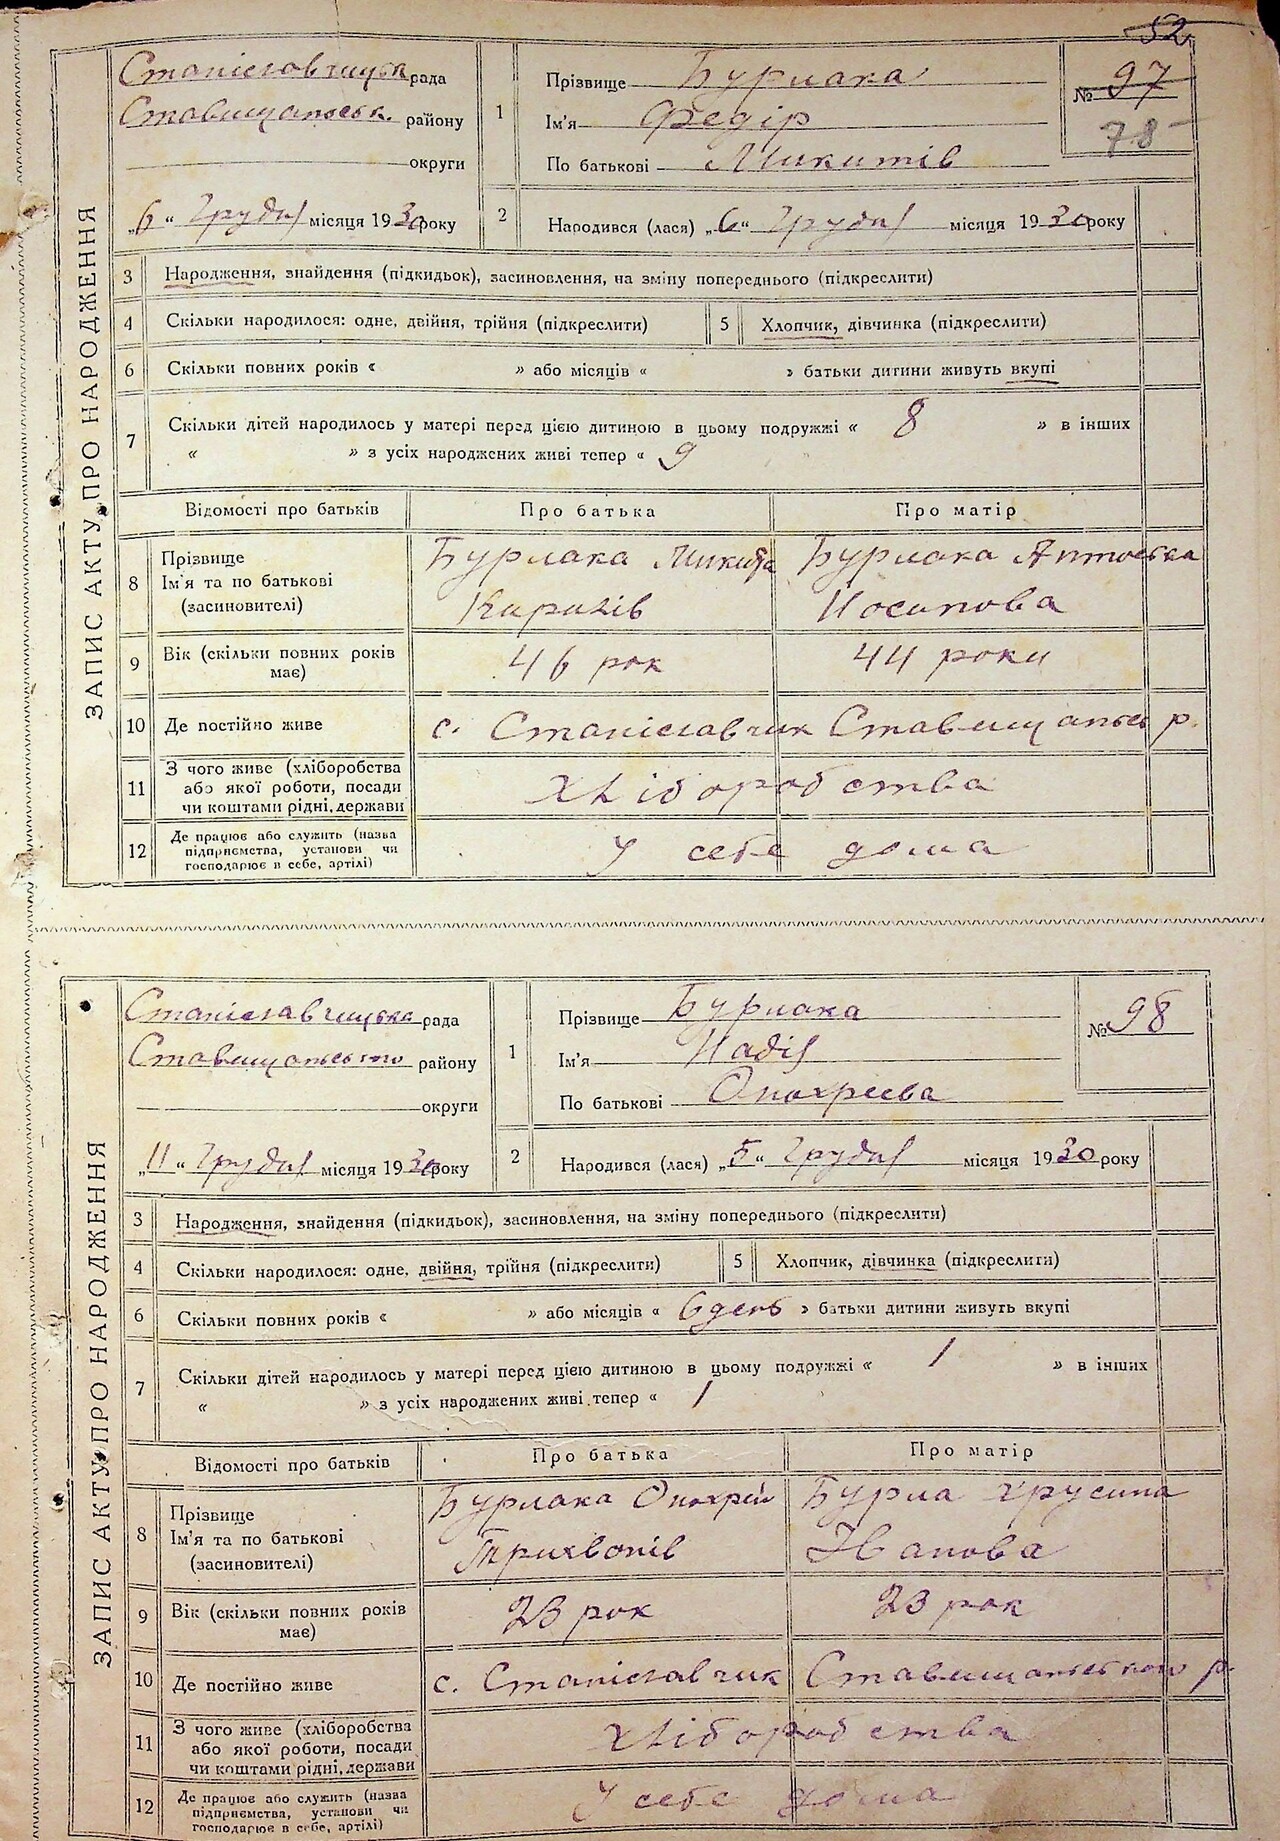 52
ЗАПИС АКТУ ПРО НАРОДЖЕННЯ
Станіславчицька рада
Ставищанськ. району
округи
„6“ Грудня місяця 1930 року
1 Прізвище Бурлака
Ім'я Федір
По батькові Микитів
№ 97
78
2 Народився (лася) „6“ Грудня місяця 1930 року
3 Народження, знайдення (підкидьок), засиновлення, на зміну попереднього (підкреслити)
4 Скільки народилося: одне, двійня, трійня (підкреслити) 5 Хлопчик, дівчинка (підкреслити)
6 Скільки повних років « » або місяців « » батьки дитини живуть вкупі
7 Скільки дітей народилось у матері перед цією дитиною в цьому подружжі « 8 » в інших
« » з усіх народжених живі тепер « 9
Відомості про батьків Про батька Про матір
8 Прізвище Ім'я та по батькові (засиновителі)
Бурлака Микита Бурлака Антоська
Кирилів Йосипова
9 Вік (скільки повних років має) 46 рок 44 роки
10 Де постійно живе с. Станіславчик Ставищанськ р.
11 З чого живе (хліборобства або якої роботи, посади чи коштами рідні, держави хліборобства
12 Де працює або служить (назва підприємства, установи чи господарює в себе, артілі) У себе дома
ЗАПИС АКТУ ПРО НАРОДЖЕННЯ
Станіславчицька рада
Ставищанського району
округи
„11“ Грудня місяця 1930 року
1 Прізвище Бурлака
Ім'я Надія
По батькові Онохрієва
№ 98
2 Народився (лася) „5“ Грудня місяця 1930 року
3 Народження, знайдення (підкидьок), засиновлення, на зміну попереднього (підкреслити)
4 Скільки народилося: одне, двійня, трійня (підкреслити) 5 Хлопчик, дівчинка (підкреслити)
6 Скільки повних років « » або місяців « 6 день » батьки дитини живуть вкупі
7 Скільки дітей народилось у матері перед цією дитиною в цьому подружжі « 1 » в інших
« » з усіх народжених живі тепер « 1
Відомості про батьків Про батька Про матір
8 Прізвище Ім'я та по батькові (засиновителі)
Бурлака Онохрій Бурла Хрусина
Трихвонів Іванова
9 Вік (скільки повних років має) 23 рок 23 рок
10 Де постійно живе с. Станіславчик Ставищанського р.
11 З чого живе (хліборобства або якої роботи, посади чи коштами рідні, держави хліборобства
12 Де працює або служить (назва підприємства, установи чи господарює в себе, артілі) У себе дома